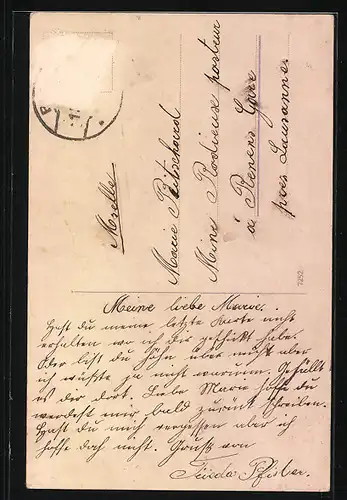 Mselle
Marie Bitschard
Mme Rodieux posteur
à Renens Gare
près Lausanne.
7252
Meine liebe Marie.
Hast du meine letzte Karte nicht
erhalten wo ich dir geschikt habe.
Oder bist du höhn aber nicht aber
ich wüsste ja nicht warum. Gefällt
es dir dort. Liebe Marie hoffe du
werdest mir bald zurück schreiben.
Hast du mich vergessen aber ich
hoffe doch nicht. Gruss von
Frieda Pfister.